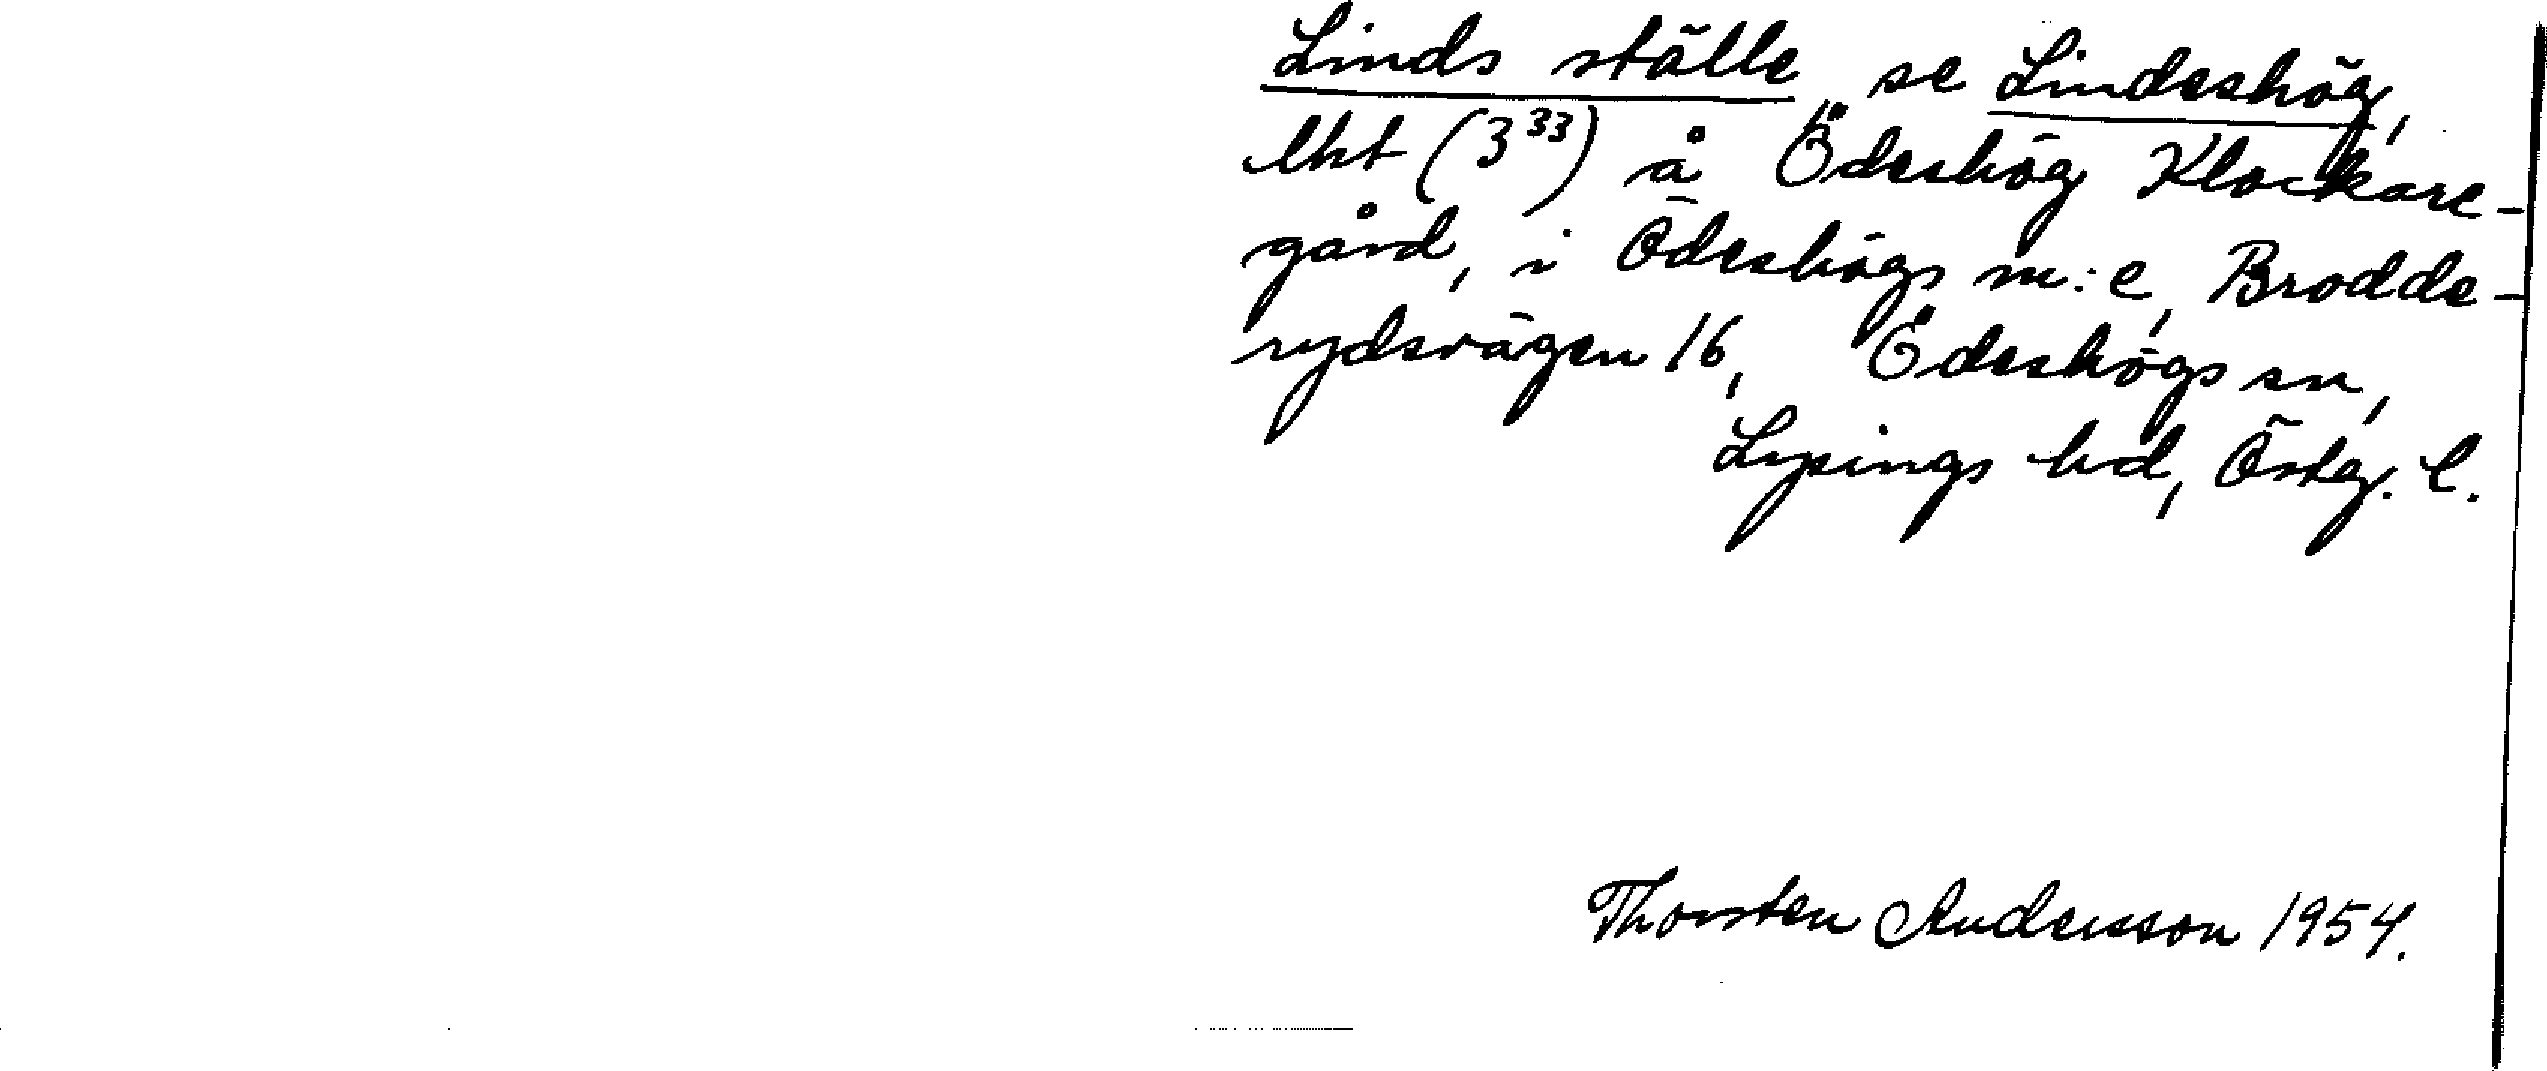 Linds ställe, se Lindeshög,
lht (3³³) å Ödeshög Klockare-
gård, i Ödeshögs m:e, Brodde-
rydsvägen 16, Ödeshögs sn,
Lysings hd, Östg. l.
Thorsten Andersson 1954.